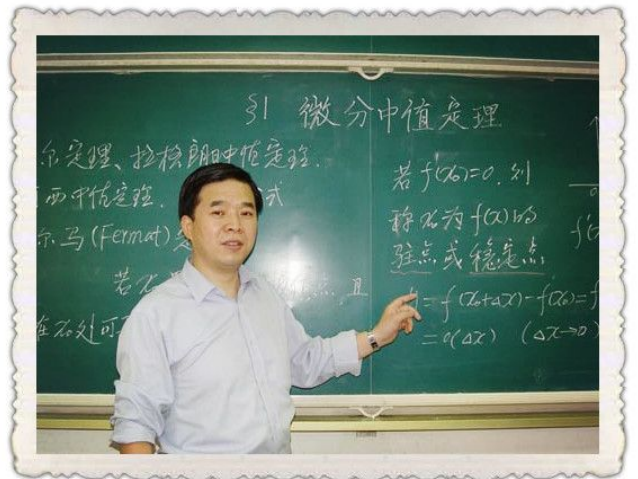 §1 微分中值定理
尔定理、拉格朗日中值定理.
西中值定理. 式
尔马(Fermat)
若x 点,且
在x₀处可
若f'(x₀)=0,则
称x₀为f(x)的
驻点或稳定点.
=f(x₀+Δx)-f(x₀)=f
=o(Δx) (Δx→0)